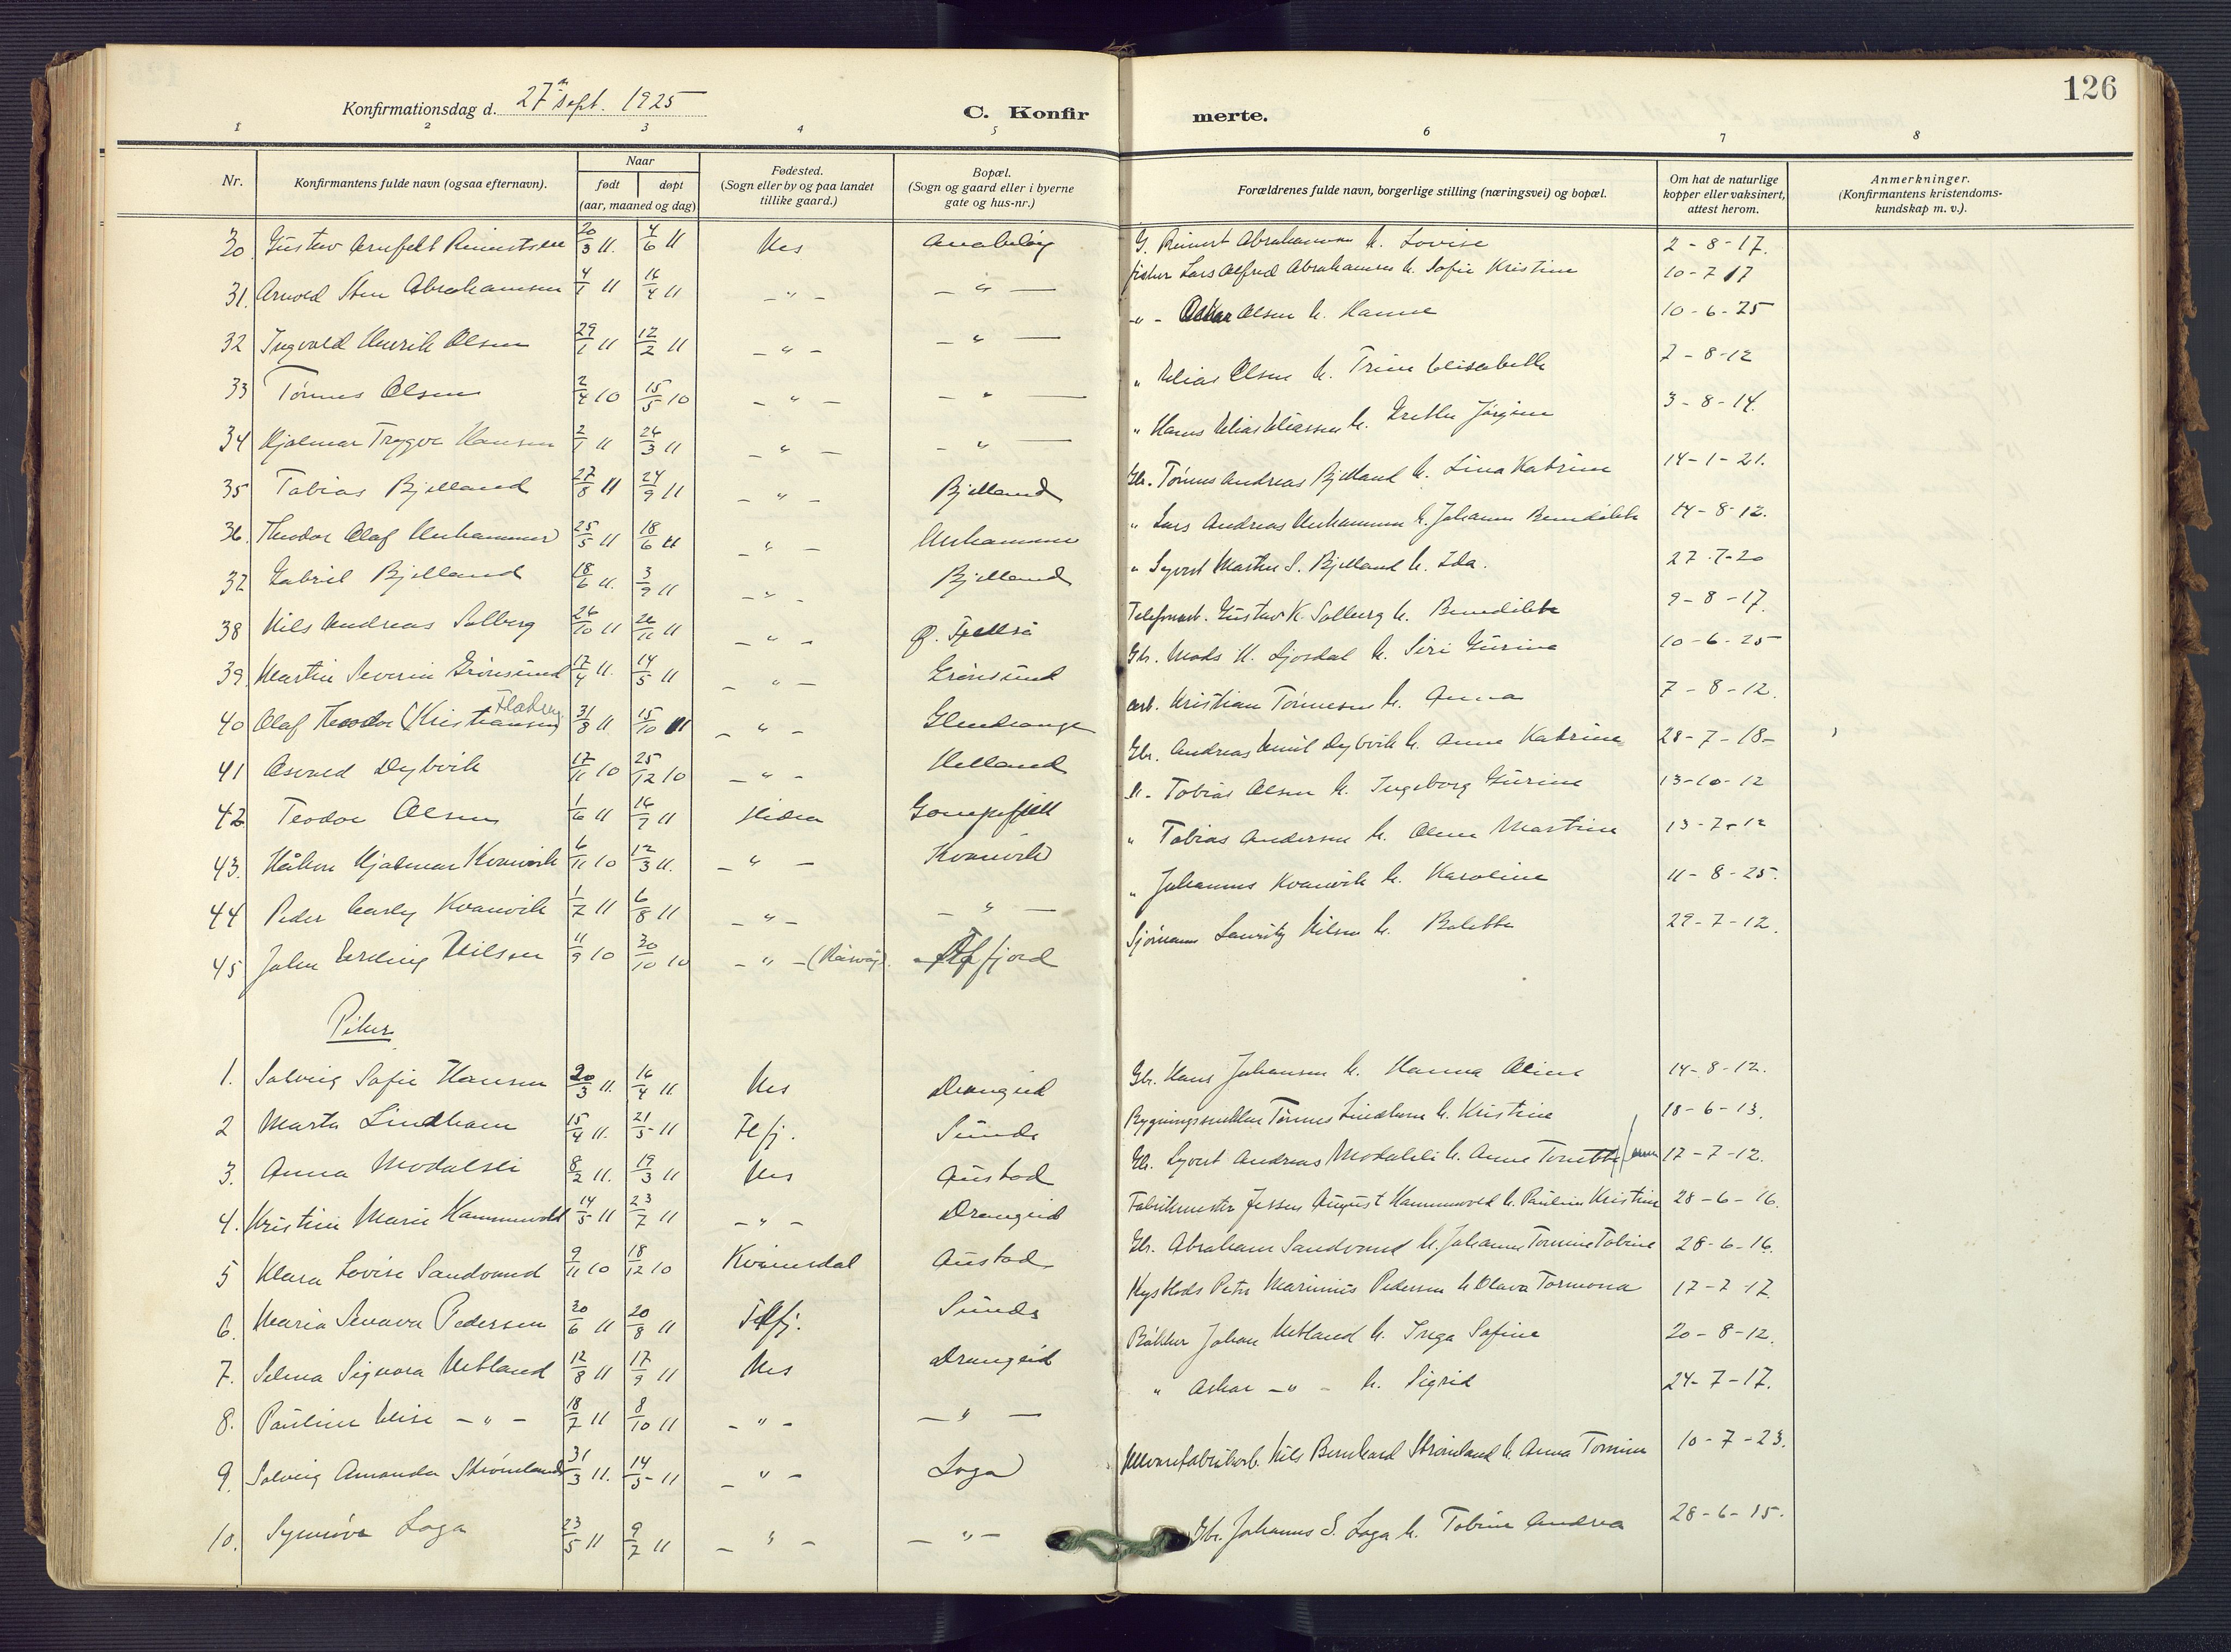 126
Konfirmationsdag d. 27de sept. 1925
C. Konfirmerte.
1 2 3 4 5 6 7 8
Nr. Konfirmantens fulde navn (ogsaa efternavn). Naar født døpt (aar, maaned og dag) Fødested. (Sogn eller by og paa landet tillike gaard.) Bopæl. (Sogn og gaard eller i byerne gate og hus-nr.) Forældrenes fulde navn, borgerlige stilling (næringsvei) og bopæl. Om hat de naturlige kopper eller vaksinert, attest herom. Anmerkninger. (Konfirmantens kristendomskundskap m. v.).
30 Gustav 20/3 11. 4/6 11 Nes Anabeløy G. Reinert Abrahamsen h. Lovise 2-8-17.
31. Arnold Sten Abrahamsen 4/1 11 16/4 11 -"- -"- fisker Lars Alfred Abrahamsen h. Sofie Kristine 10-7 17
32 Ingvald Henrik Olsen 29/1 11 12/2 11 -"- -"- -"- Oskar Olsen h. Hanne 10-6-25
33 Tønnes Olsen 2/4 10 15/5 10 -"- -"- " Elias Olsen h. Trine Elisabeth 7-8-12
34 Hjalmar Trygve Hansen 2/1 11 26/3 11 -"- -"- " Hans Elias Eliassen h. Grethe Jørgine 3-8-14.
35 Tobias Bjelland 27/8 11 24/9 11 -"- Bjelland Gbr. Tønnes Andreas Bjelland h. Lina Katrine 14-1-21.
36. Theodor Olaf Urhammer 25/5 11 18/6 11 -"- Urhammer " Lars Andreas Urhammer h. Johanne Benedikte 14-8-12.
37 Gabriel Bjelland 18/6 11. 3/9 11 -"- Bjelland " Syvert Martin S. Bjelland h. Ida. 27-7-20
38 Nils Andreas Solberg 26/10 11 26/11 11 -"- Ø. Fjellså Telefonarb. Gustav K. Solberg h. Benedikte 9-8-17.
39. Martin Severin Grønsund 17/4 11. 14/5 11 -"- Grønsund Gbr. Mads H. Ljosdal h. Siri Gurine 10-6-25
40 Olaf Theodor (Kristiansen) 31/8 11 15/10 11 -"- Glendrange arb. Kristian Tønnesen h. Anna 7-8-12.
41 Osvald Dybvik 17/11 10 25/12 10 -"- Helland Gbr. Andreas Emil Dybvik h. Anne Katrine 28-7-18-
42 Teodor Olsen 1/6 11 16/7 11 Hidra Gompefjell h. Tobias Olsen h. Ingeborg Gurine 13-10-12
43. Håkon Hjalmar Kvanvik 6/11 10 12/3 11. -"- Kvanvik " Tobias Andersen h. Oline Martine 13-7-12
44 Peder Carly Kvanvik 1/7 11 6/8 11 -"- -"- " Johannes Kvanvik h. Karoline 11-8-25.
45 John Erling Nilsen 11/9 10 30/10 10 -"- fjord Sjømann Lauritz Nilsen h. Bolette 29-7-12.
Piker
1. Solveig Sofie Hansen 20/3 11. 16/4 11. Nes Drangeid Gbr. Hans Johansen h. Hanna Oline 14-8-12.
2 Marta Lindham 15/4 11. 21/5-11 Flfj. Sunde Tønnes Lindham h. Kristine 18-6-13.
3. Anna Modalsli 8/2 11. 19/3 11 Nes Austad Gbr. Syvert Andreas Modalsli h. Anne Tonette 17-7-12.
4. Kristine Marie Hammervold 14/5 11 23/7 11 -"- Drangeid Fabrikmester Jessen August Hammervold h. Pauline Kristine 28-6-16.
5 Klara Lovise Sandvand 9/11 10 18/12 10 Kvinesdal Austad Gbr. Abraham Sandvand h. Johanne Tomine Tobine 28-6-16.
6. Maria Senava Pedersen 30/6 11 20/8 11 Flfj. Sunde Petter Marinius Pedersen h. Olava Tormona 17-7-17.
7. Selma Signora Netland 12/8 11 17/9 11 Nes Drangeid Bøkker Johan Netland h. Inga Sofine 20-8-12.
8. Pauline Elise -"- 18/7 11 8/10 11 -"- -"- " Oskar -"- h. Sigrid 24-7-17.
9. Solveig Amanda Strømland 31/3 11. 14/5-11 -"- Loga Uldvarefabrikarb. Nils Bernhard Strømland h. Anna Tomine 10-7-23.
10. Synnøve Loga 23/5 11 9/7 11 -"- "- Gbr. Johannes S. Loga h. Tobine Andrea 28-6-15.